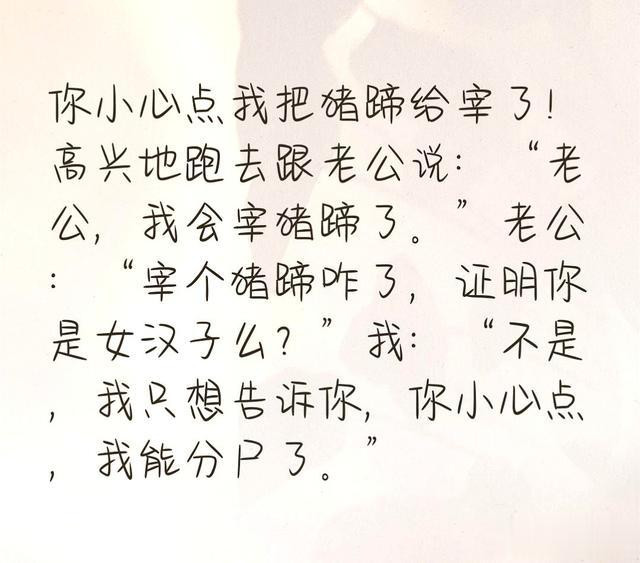 你小心点我把猪蹄给宰了!
高兴地跑去跟老公说:“老
公,我会宰猪蹄了。”老公
:“宰个猪蹄咋了,证明你
是女汉子么?”我:“不是
,我只想告诉你,你小心点
,我能分尸了。”